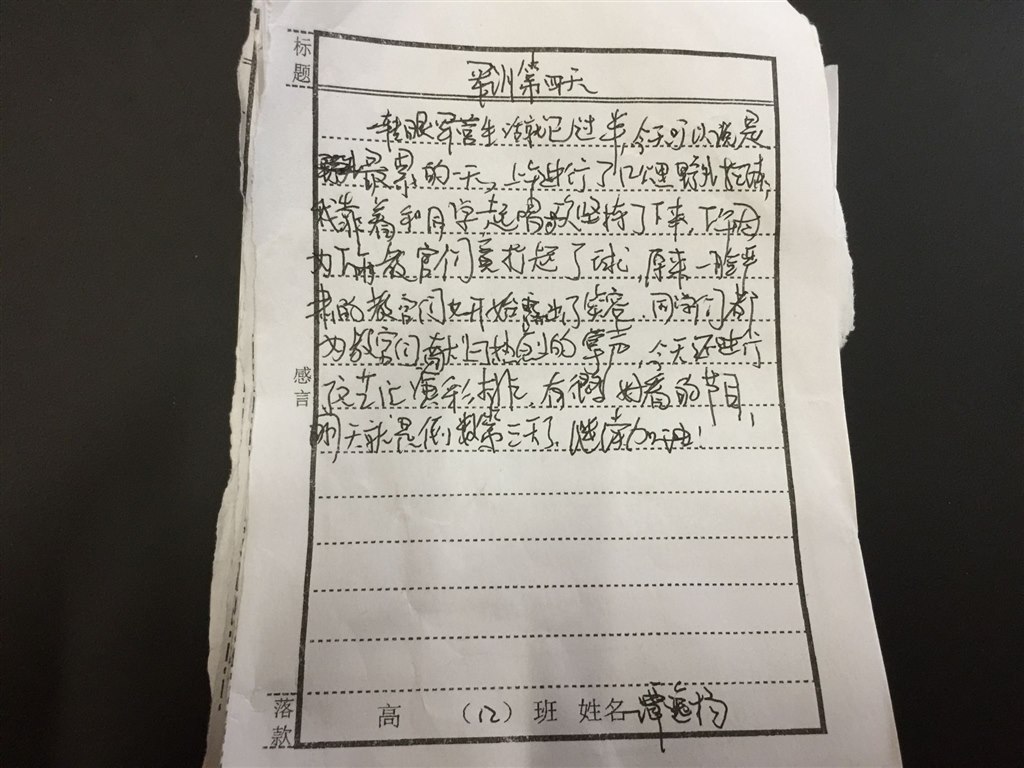 标题
军训第四天
一转眼军营生活就已过半,今天可以说是
最累的一天,上午进行了12公里野外拉练,
我靠着和同学一起唱歌坚持了下来,下午因
为下雨教官们竟打起了球,原来一脸严
肃的教官们也开始露出了笑容,同学们都
为教官们献上热烈的掌声,今天还进行
文艺汇演彩排,有很多好看的节目,
明天就是倒数第三天了,继续加油!
感言
落款
高 (12) 班 姓名 谭